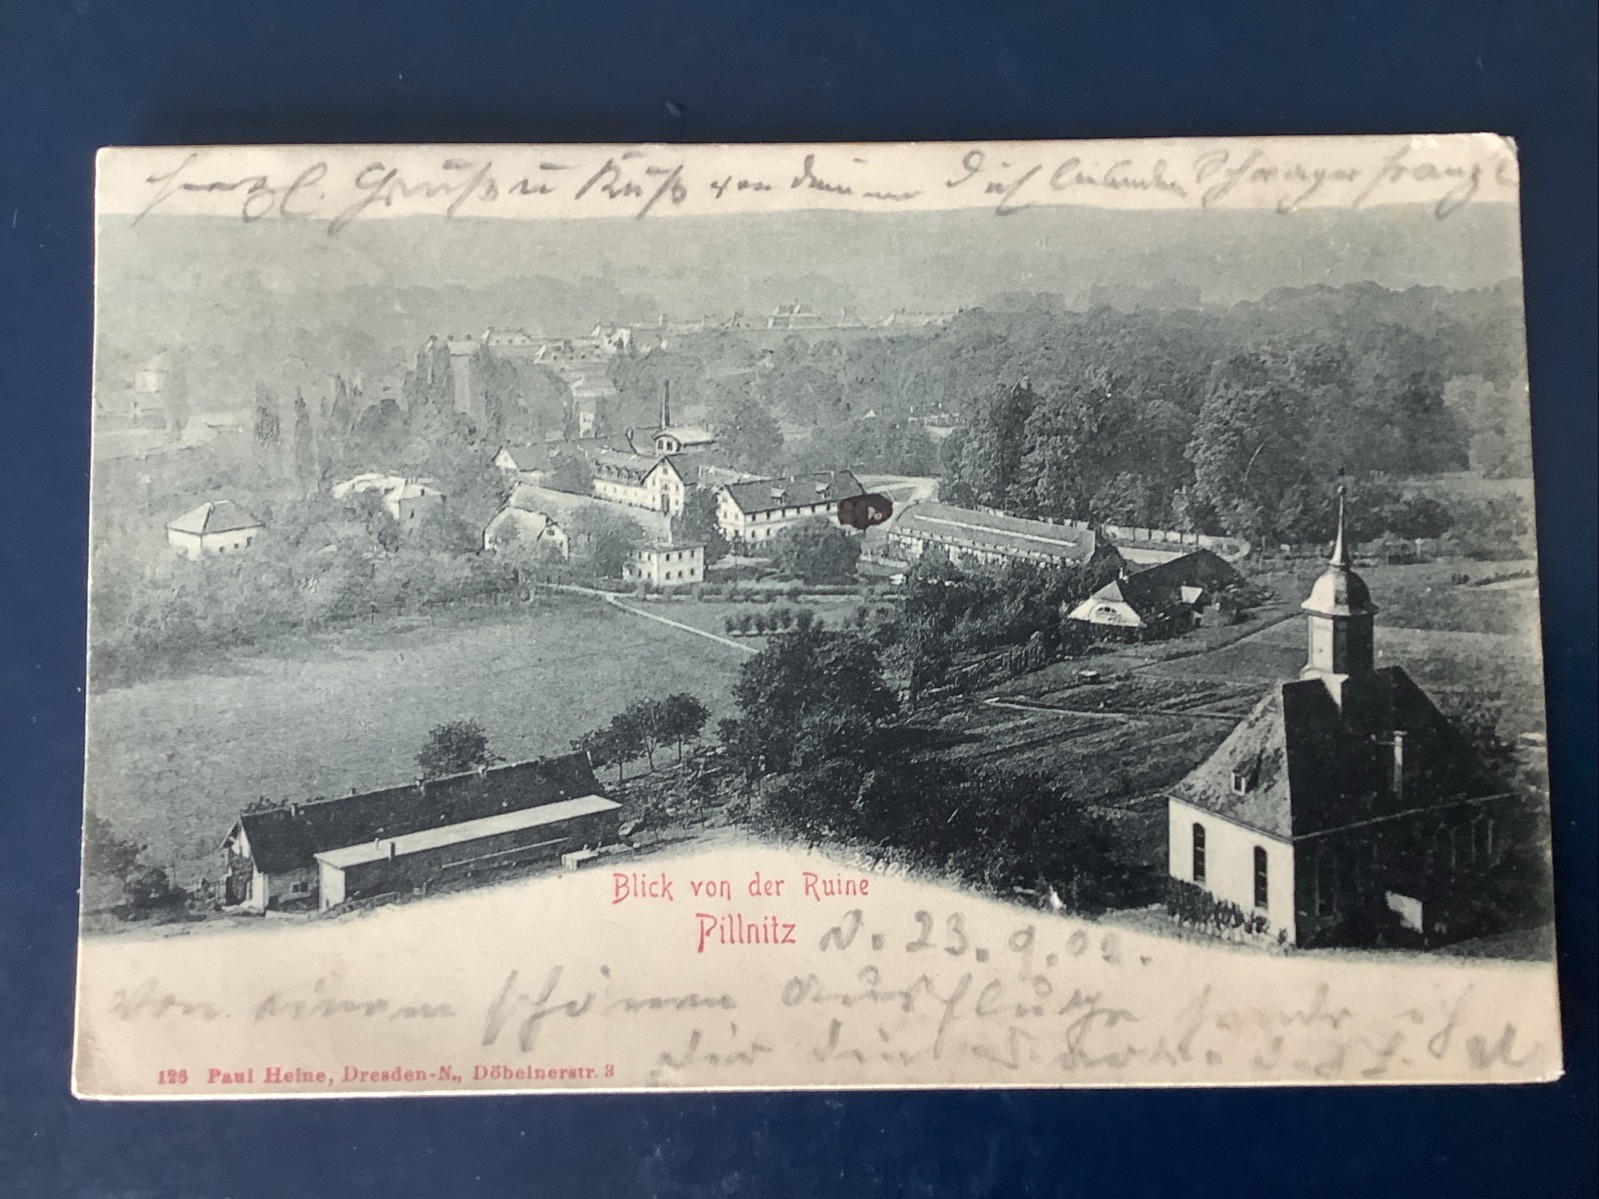 herzl. Gruß u Kuß von deinem Dich liebenden Schwager Franz
Blick von der Ruine
Pillnitz d. 23. 9. 02.
Von einem schönen Ausfluge sende ich
dir
126 Paul Heine, Dresden-N., Döbelnerstr. 3